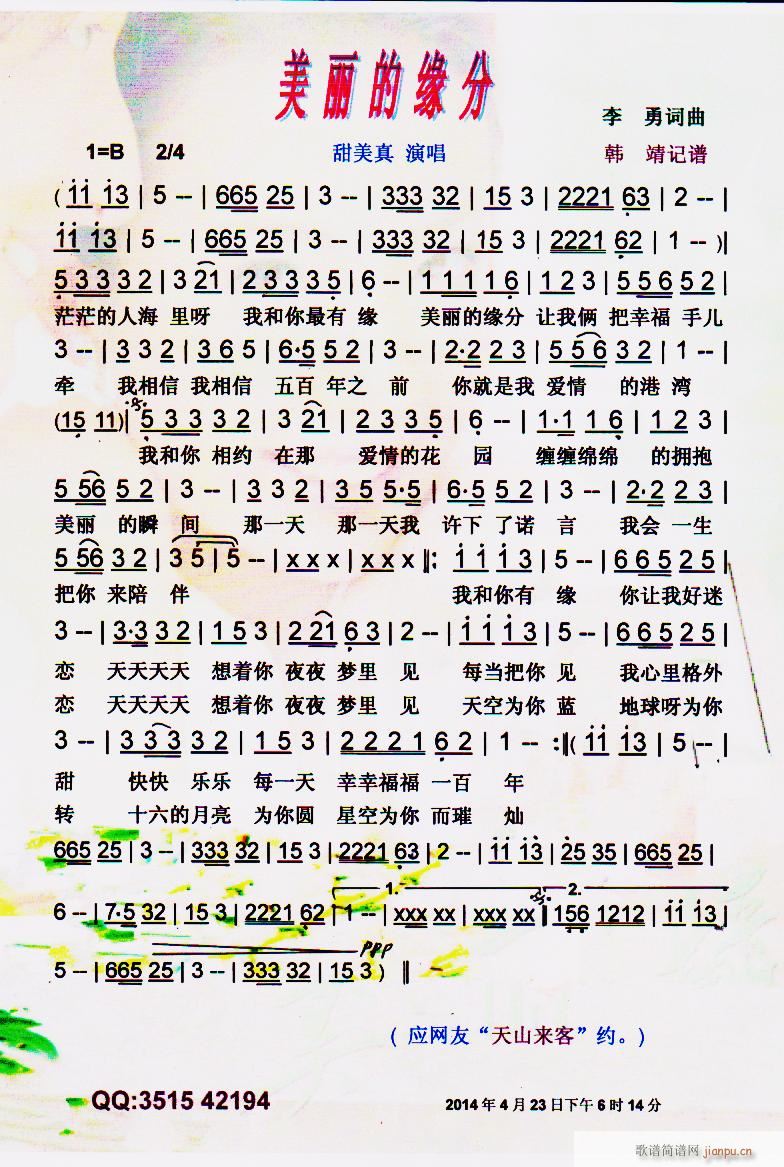 美丽的缘分
李 勇词曲
1=B 2/4 甜美真 演唱 韩 靖记谱
( 11 13 | 5 -- | 665 25 | 3 -- | 333 32 | 15 3 | 2221 63 | 2 -- |
11 13 | 5 -- | 665 25 | 3 -- | 333 32 | 15 3 | 2221 62 | 1 -- )|
5 3 3 3 2 | 3 21 | 2 3 3 3 5 | 6 -- | 1 1 1 1 6 | 1 2 3 | 5 5 6 5 2 |
茫茫的人海 里呀 我和你最有 缘 美丽的缘分 让我俩 把幸福 手儿
3 -- | 3 3 2 | 3 6 5 | 6·5 5 2 | 3 -- | 2·2 2 3 | 5 5 6 3 2 | 1 -- |
牵 我相信 我相信 五百 年之 前 你就是我 爱情 的港 湾
(15 11)| 5 3 3 3 2 | 3 21 | 2 3 3 5 | 6 -- | 1·1 1 6 | 1 2 3 |
我和你 相约 在那 爱情的花 园 缠缠绵绵 的拥抱
5 56 5 2 | 3 -- | 3 3 2 | 3 5 5·5 | 6·5 5 2 | 3 -- | 2·2 2 3 |
美丽 的瞬 间 那一天 那一天我 许下 了诺 言 我会 一生
5 5 6 3 2 | 3 5 | 5 -- | x x x | x x x ‖: 1 1 1 3 | 5 -- | 6 6 5 2 5 |
把你 来陪 伴 我和你有 缘 你让我好迷
3 -- | 3·3 3 2 | 1 5 3 | 2 2 1 6 3 | 2 -- | 1 1 1 3 | 5 -- | 6 6 5 2 5 |
恋 天天天天 想着你 夜夜 梦里 见 每当把你 见 我心里格外
恋 天天天天 想着你 夜夜 梦里 见 天空为你 蓝 地球呀为你
3 -- | 3 3 3 3 2 | 1 5 3 | 2 2 2 1 6 2 | 1 -- :‖( 11 13 | 5 -- |
甜 快快 乐乐 每一天 幸幸福福 一百 年
转 十六的月亮 为你圆 星空为你 而璀 灿
665 25 | 3 -- | 333 32 | 15 3 | 2221 63 | 2 -- | 11 13 | 25 35 | 665 25 |
1. 2.
6 -- | 7·5 32 | 15 3 | 2221 62 | 1 -- | xxx xx | xxx xx ‖ 156 1212 | 11 13 |
ppp
5 -- | 665 25 | 3 -- | 333 32 | 15 3 ) ‖
( 应网友“天山来客”约。)
QQ:3515 42194 2014年4月23日下午6时14分
歌谱简谱网
jianpu.cn